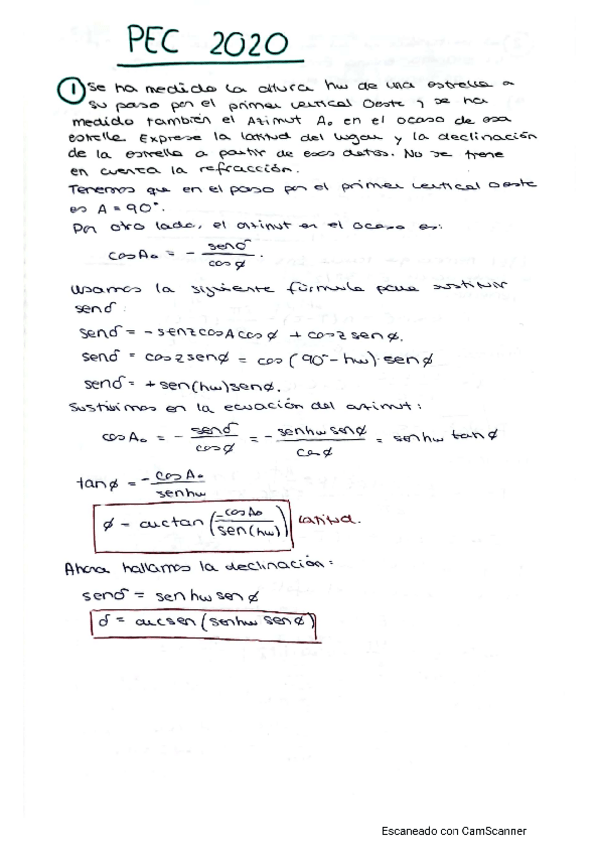 PEC 2020
① Se ha medido la altura hw de una estrella a
su paso por el primer vertical Oeste y se ha
medido también el Azimut A₀ en el ocaso de esa
estrella. Exprese la latitud del lugar y la declinación
de la estrella a partir de esos datos. No se tiene
en cuenta la refracción.
Tenemos que en el paso por el primer vertical oeste
es A = 90°.
Por otro lado, el azimut en el ocaso es:
cos A₀ = - senδ / cosϕ.
Usamos la siguiente fórmula para sustituir
senδ:
senδ = - senz cosA cosϕ + cosz senϕ.
senδ = cosz senϕ = cos(90° - hw)·senϕ
senδ = + sen(hw) senϕ.
Sustituimos en la ecuación del azimut:
cos A₀ = - senδ / cosϕ = - senhw senϕ / cosϕ = senhw tanϕ
tanϕ = - cos A₀ / senhw
ϕ = arctan (- cos A₀ / sen(hw)) latitud.
Ahora hallamos la declinación:
senδ = senhw senϕ
δ = arcsen (senhw senϕ)
Escaneado con CamScanner